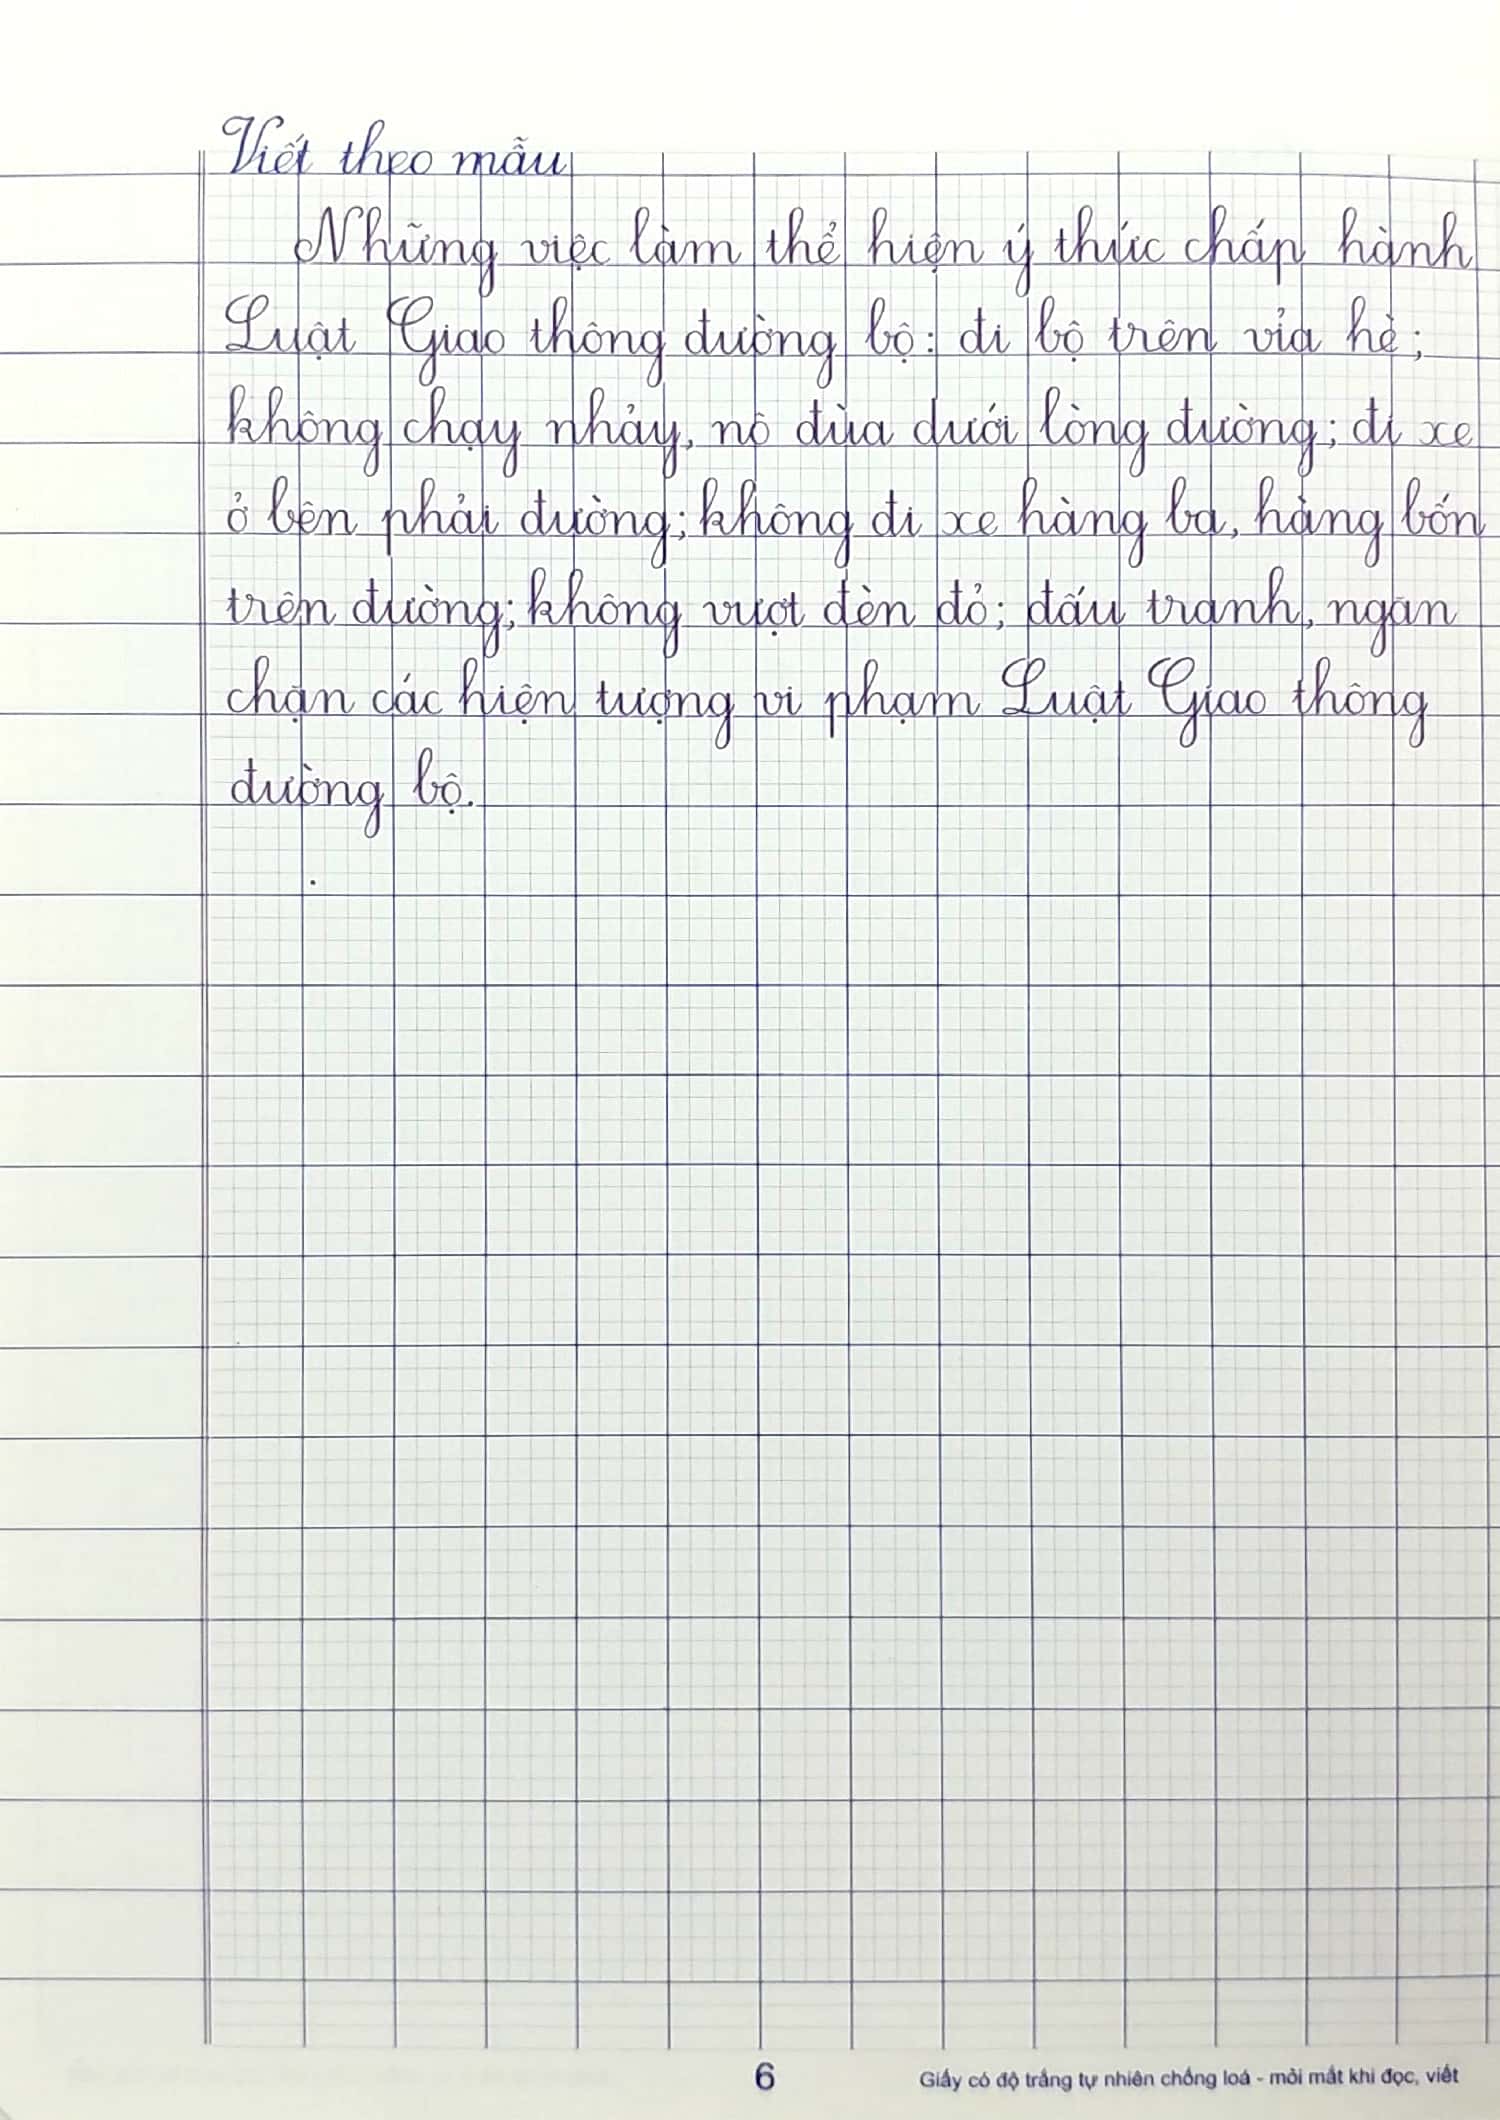 Viết theo mẫu
Những việc làm thể hiện ý thức chấp hành
Luật Giao thông đường bộ: đi bộ trên vỉa hè;
không chạy nhảy, nô đùa dưới lòng đường; đi xe
ở bên phải đường; không đi xe hàng ba, hàng bốn
trên đường; không vượt đèn đỏ; đấu tranh, ngăn
chặn các hiện tượng vi phạm Luật Giao thông
đường bộ.
6
Giấy có độ trắng tự nhiên chống loá - mỏi mắt khi đọc, viết